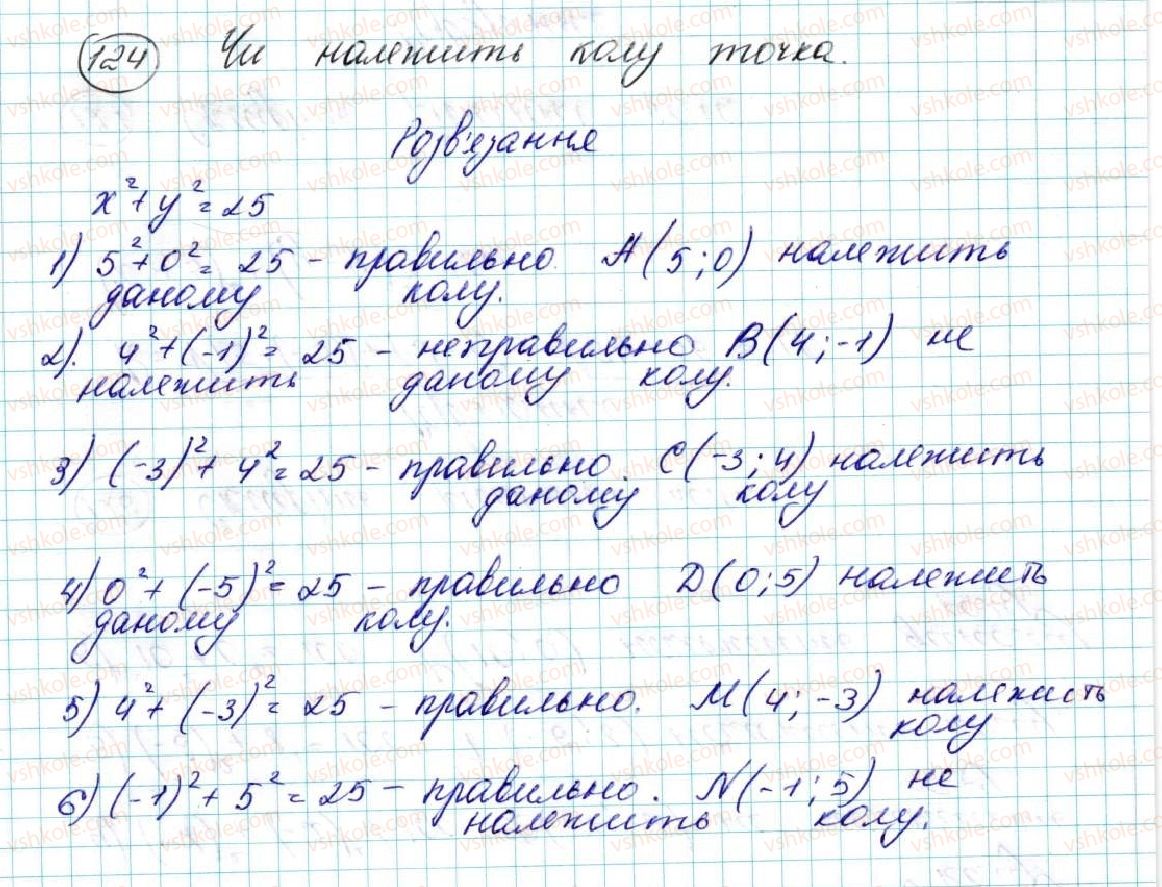 124 Чи належить колу точка.
Розв'язання
x² + y² = 25
1) 5² + 0² = 25 - правильно. A(5;0) належить
даному колу.
2). 4² + (-1)² = 25 - неправильно B(4;-1) не
належить даному колу.
3) (-3)² + 4² = 25 - правильно. C(-3;4) належить
даному колу
4) 0² + (-5)² = 25 - правильно D(0;5) належить
даному колу.
5) 4² + (-3)² = 25 - правильно. M(4;-3) належить
колу
6) (-1)² + 5² = 25 - правильно. N(-1;5) не
належить колу.
vshkole.com